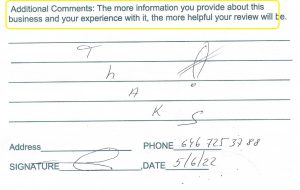 Additional Comments: The more information you provide about this
business and your experience with it, the more helpful your review will be.
T
h
A
K
S
Address
PHONE 646 725 3788
SIGNATURE
,DATE 5/6/22